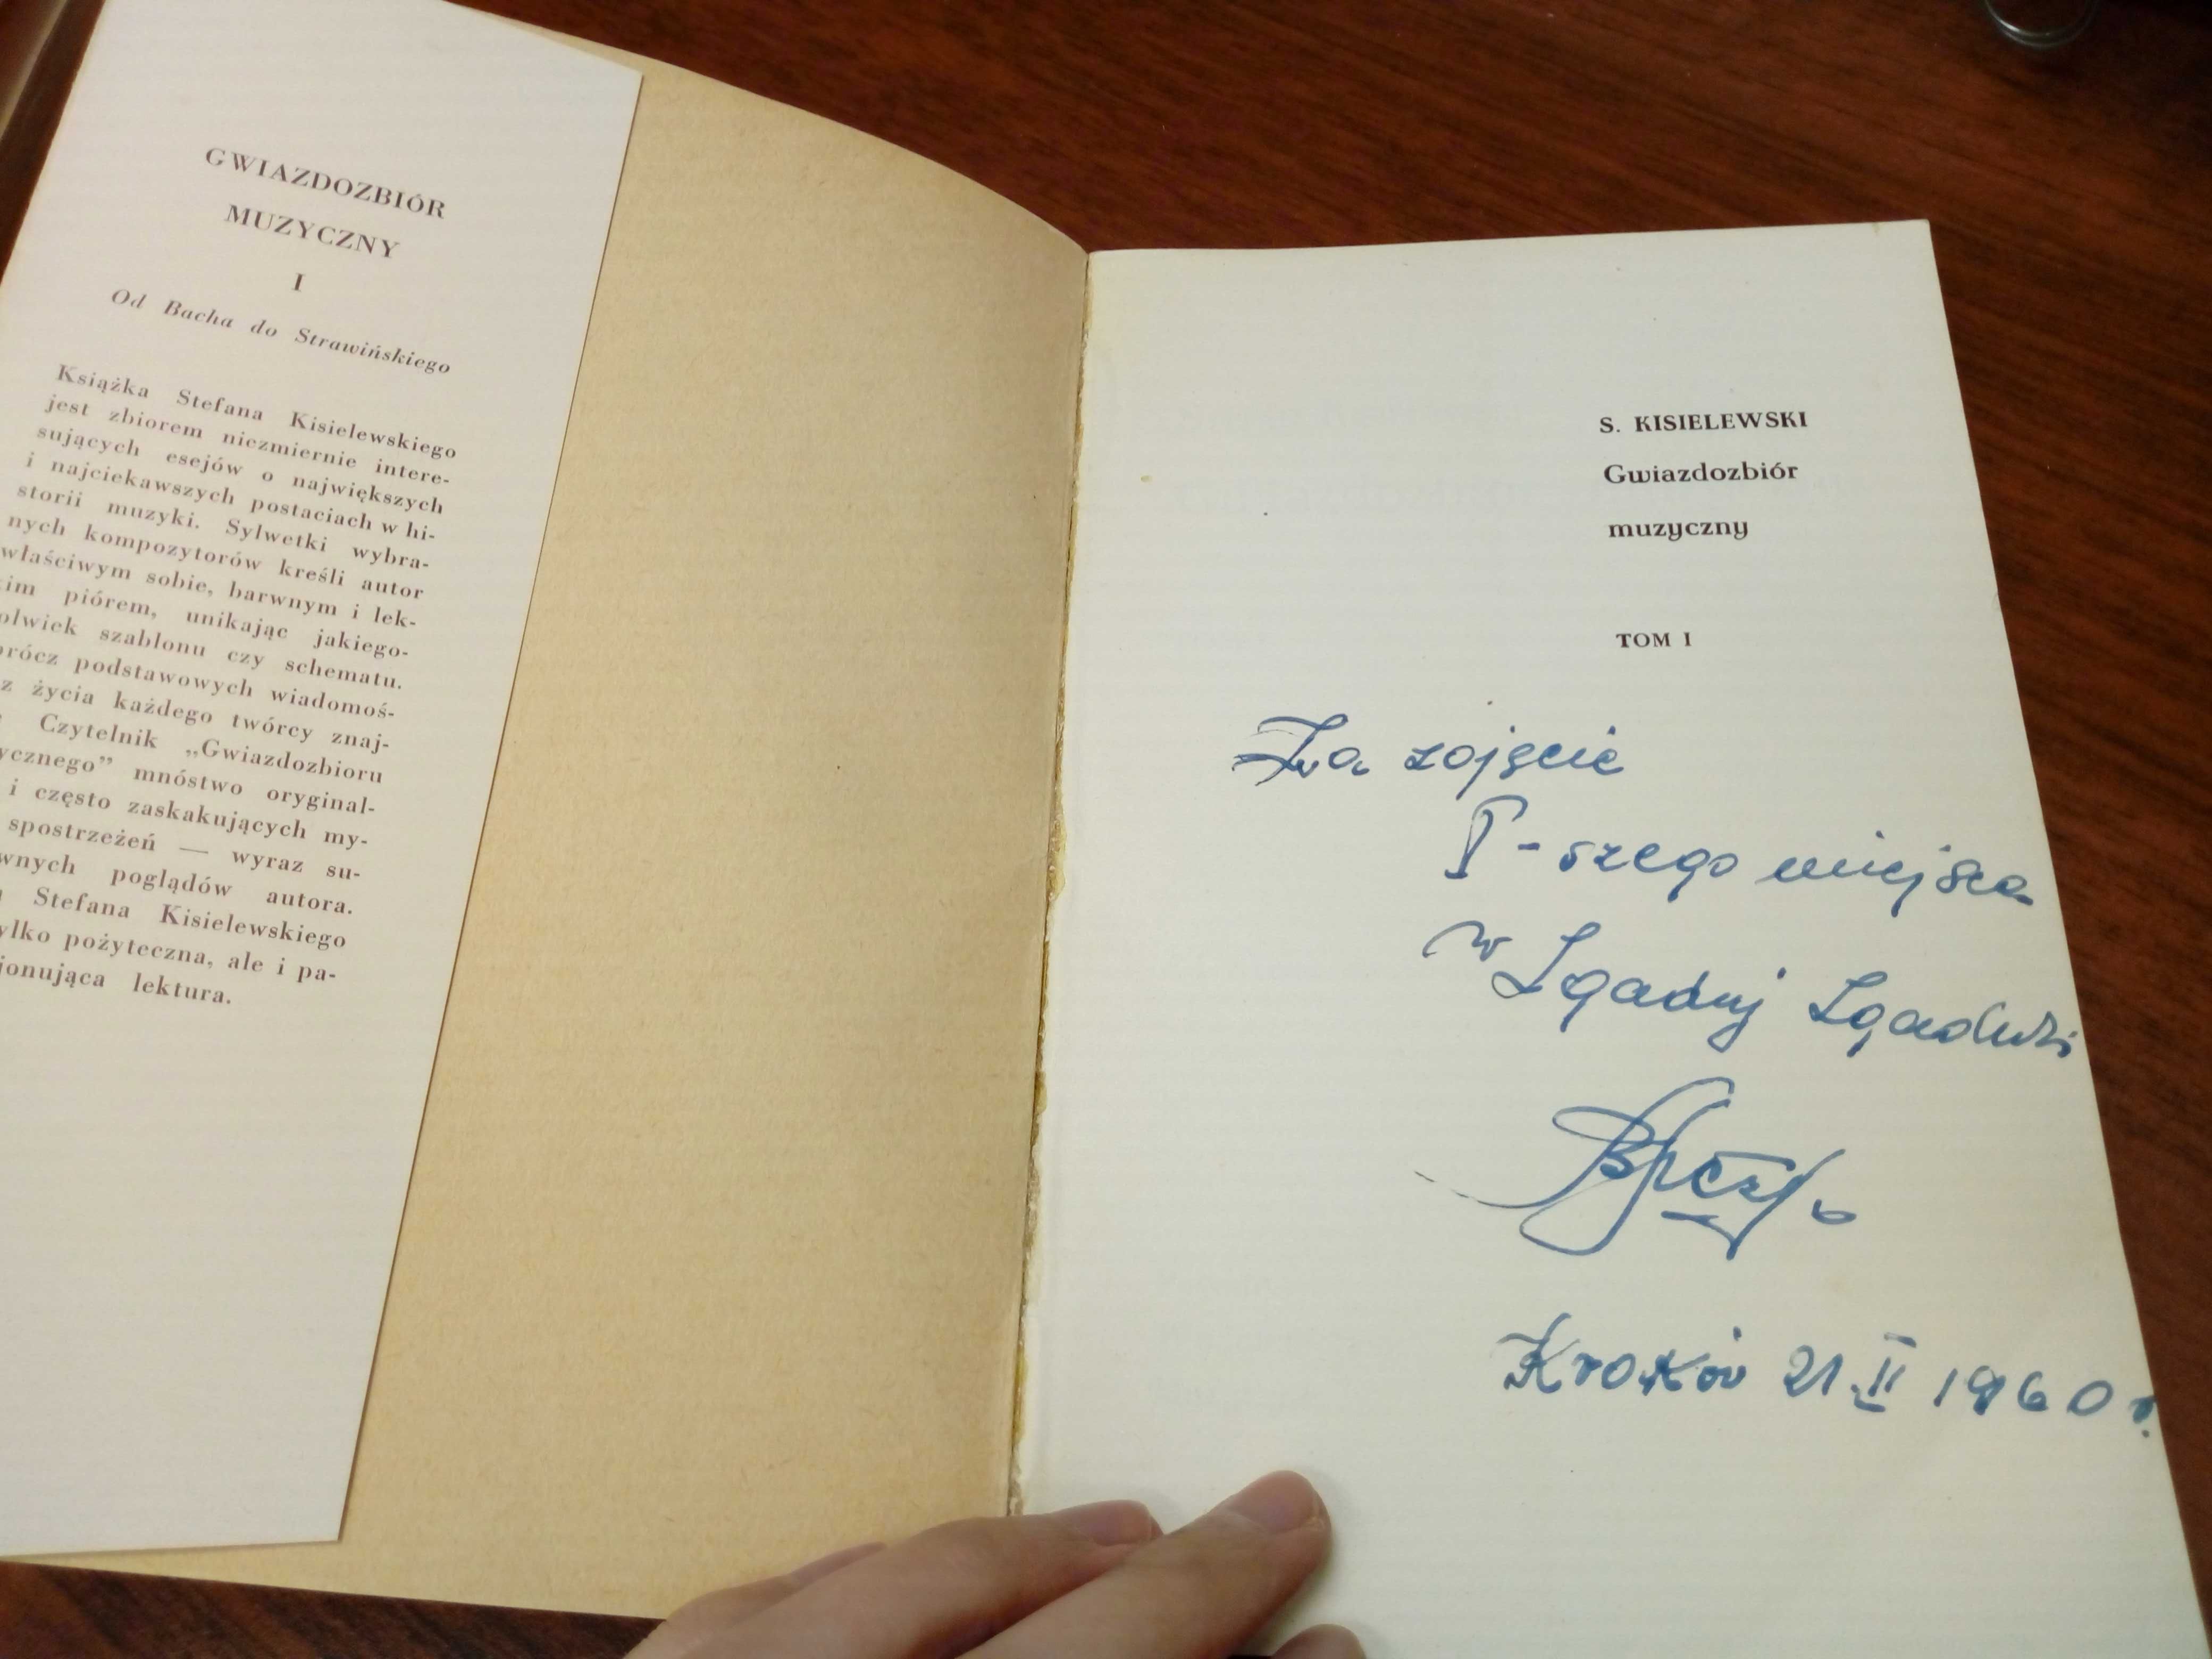 GWIAZDOZBIÓR
MUZYCZNY
I
Od Bacha do Strawińskiego
Książka Stefana Kisielewskiego
jest zbiorem niezmiernie intere-
sujących esejów o największych
i najciekawszych postaciach w hi-
storii muzyki. Sylwetki wybra-
nych kompozytorów kreśli autor
właściwym sobie, barwnym i lek-
kim piórem, unikając jakiego-
olwiek szablonu czy schematu.
prócz podstawowych wiadomoś-
z życia każdego twórcy znaj-
Czytelnik „Gwiazdozbioru
ycznego” mnóstwo oryginal-
i często zaskakujących my-
spostrzeżeń — wyraz su-
wnych poglądów autora.
Stefana Kisielewskiego
ylko pożyteczna, ale i pa-
jonująca lektura.
S. KISIELEWSKI
Gwiazdozbiór
muzyczny
TOM I
Za zajęcie
I-szego miejsca
w Zgaduj Zgaduli
Kraków 21.II 1960 r.